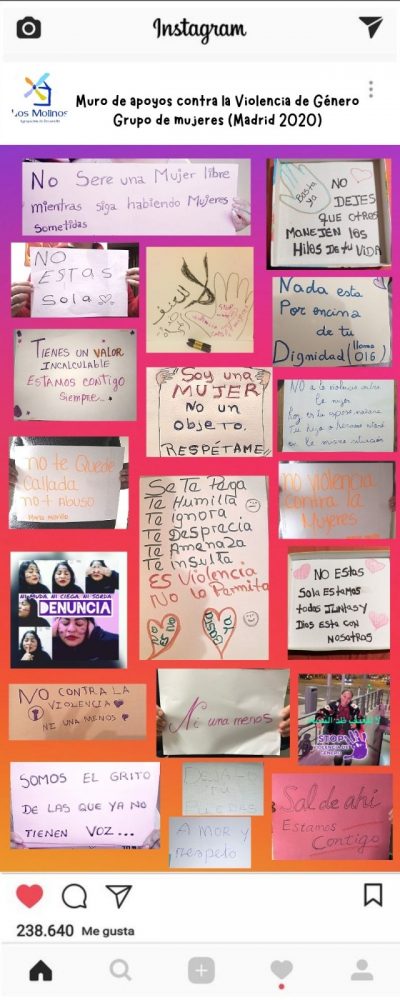 Instagram
Los Molinos
Muro de apoyos contra la Violencia de Género
Grupo de mujeres (Madrid 2020)
No Sere una Mujer libre
mientras siga habiendo Mujeres
Sometidas
Basta
ya
NO
DEJES
QUE OTROS
MANEJEN LOS
Hilos De tu VIDA
NO
ESTAS
Sola
Nada esta
Por encima
de tu
Dignidad (llama
016)
TIENES UN VALOR
INCALCULABLE
ESTAMOS CONTIGO
Siempre
Soy una
MUJER
NO UN
OBJETO.
RESPÉTAME.
NO a la violencia contra
la mujer
en la misma situación
no te Quede
Callada
no + Abuso
Se Te Pega
Te Humilla
Te Ignora
Te Desprecia
Te Amenaza
Te insulta
ES Violencia
No lo Permita
No
es
No
Basta
Ya
no violencia
contra la
Mujeres
NI MUDA NI CIEGA NI SORDA
DENUNCIA
NO ESTAS
Sola Estamos
todas JUNTAS y
Dios esta con
NOSOTROS
NO CONTRA LA
VIOLENCIA
NI UNA MENOS
Ni una menos
STOP
VIOLENCIA DE
GÉNERO
SOMOS EL GRITO
DE LAS QUE YA NO
TIENEN VOZ...
AMOR y
respeto
Sal de ahí
Estamos
Contigo
238.640 Me gusta